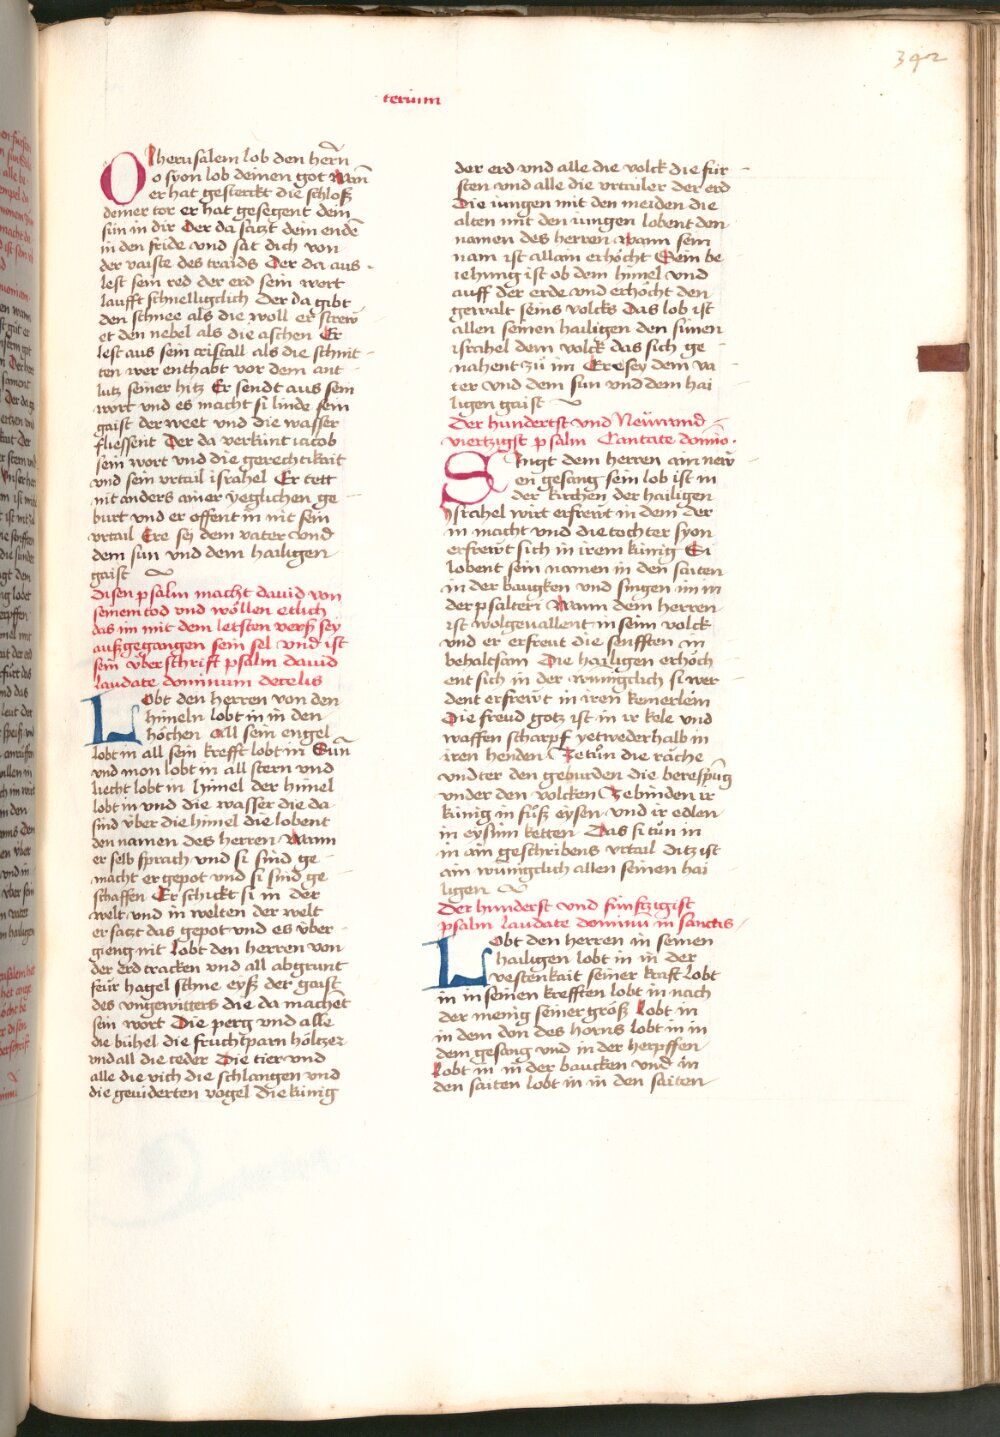 392
terium
O Jherusalem lob den herrn
o syon lob deinen got wann
er hat gesterckt die schloß
deiner tor er hat gesegent dein
sün in dir Der da satzt dein ende
in den fride vnd sat dich von
der vaiste des traids Der da aus
lest sein red der erd sein wort
laufft schnelligclich Der da gibt
den schnee als die woll er strew
et den nebel als die aschen Er
lest aus sein cristall als die schnit
ten wer enthabt vor dem ant
lutz seiner hitz Er sendt aus sein
wort vnd es macht si linde sein
gaist der weet vnd die wasser
fliessent Der da verkünt iacob
sein wort vnd die gerechtikait
vnd sein vrtail israhel Er tett
nit anders ainer yeglichen ge
burt vnd er offent in nit sein
vrtail Ere sej dem vater vnd
dem sun vnd dem hailigen
gaist
Disen psalm macht dauid von
seinem tod vnd wöllen etlich
das im mit dem letsten verß sey
außgegangen sein sel vnd ist
sein vberschrifft psalm dauid
Laudate dominum de celis
Lobt den herren von den
himeln lobt in in den
höchen all sein engel
lobt in all sein krefft lobt in Sun
vnd mon lobt in all stern vnd
liecht lobt in himel der himel
lobt in vnd die wasser die da
sind vber die himel die lobent
den namen des herren Wann
er selb sprach vnd si sind ge
macht er gepot vnd si sind ge
schaffen Er schickt si in der
welt vnd in welten der welt
er satzt das gepot vnd es vber
gieng nit Lobt den herren von
der erd tracken vnd all abgrunt
feur hagel schne eyß der gaist
des vngewitters die da machet
sein wort Die perg vnd alle
die bühel die fruchtparn höltzer
vnd all die ceder Die tier vnd
alle die vich die schlangen vnd
die geuiderten vogel Die künig
der erd vnd alle die volck die für
sten vnd alle die vrtailer der erd
Die iungen mit den meiden die
alten mit den iungen lobent den
namen des herren Wann sein
nam ist allain erhöcht Sein be
iehung ist ob dem himel vnd
auff der erde vnd erhöcht den
gewalt seins volcks Das lob ist
allen seinen hailigen den sünen
israhel dem volck das sich ge
nahent zu im Ere sey dem va
ter vnd dem sun vnd dem hai
ligen gaist
Der hundertst vnd Neünund
viertzigst psalm Cantate domino
Singt dem herren ain new
en gesang sein lob ist in
der kirchen der hailigen
Jsrahel wirt erfrewt in dem der
in macht vnd die tochter syon
erfrewt sich in irem künig Si
lobent sein namen in den saiten
in der baugken vnd singen im in
der psalteri Wann dem herren
ist wolgeuallent in seim volck
vnd er erfreut die senfften in
behaltsam Die hailigen erhöch
ent sich in der wunigclich si wer
dent erfrewt in iren kemerlein
Die freud gotz ist in ir kele vnd
waffen scharpf yetwederhalb in
iren henden Zetun die räche
vndter den geburden die berespung
vnder den volcken Zebinden ir
künig in fuß eysen vnd ir edlen
in eysnin ketten Das si tun in
in ain geschribens vrtail ditz ist
ain wunigclich allen seinen hai
ligen
Der hunderst vnd fünftzigist
psalm laudate dominum in sanctis
Lobt den herren in seinen
hailigen lobt in in der
vestenkait seiner kraft Lobt
in in seinen krefften lobt in nach
der menig seiner größ Lobt in
in dem don des horns lobt in in
dem gesang vnd in der herpffen
Lobt in in der baucken vnd in
den saiten lobt in in den saiten